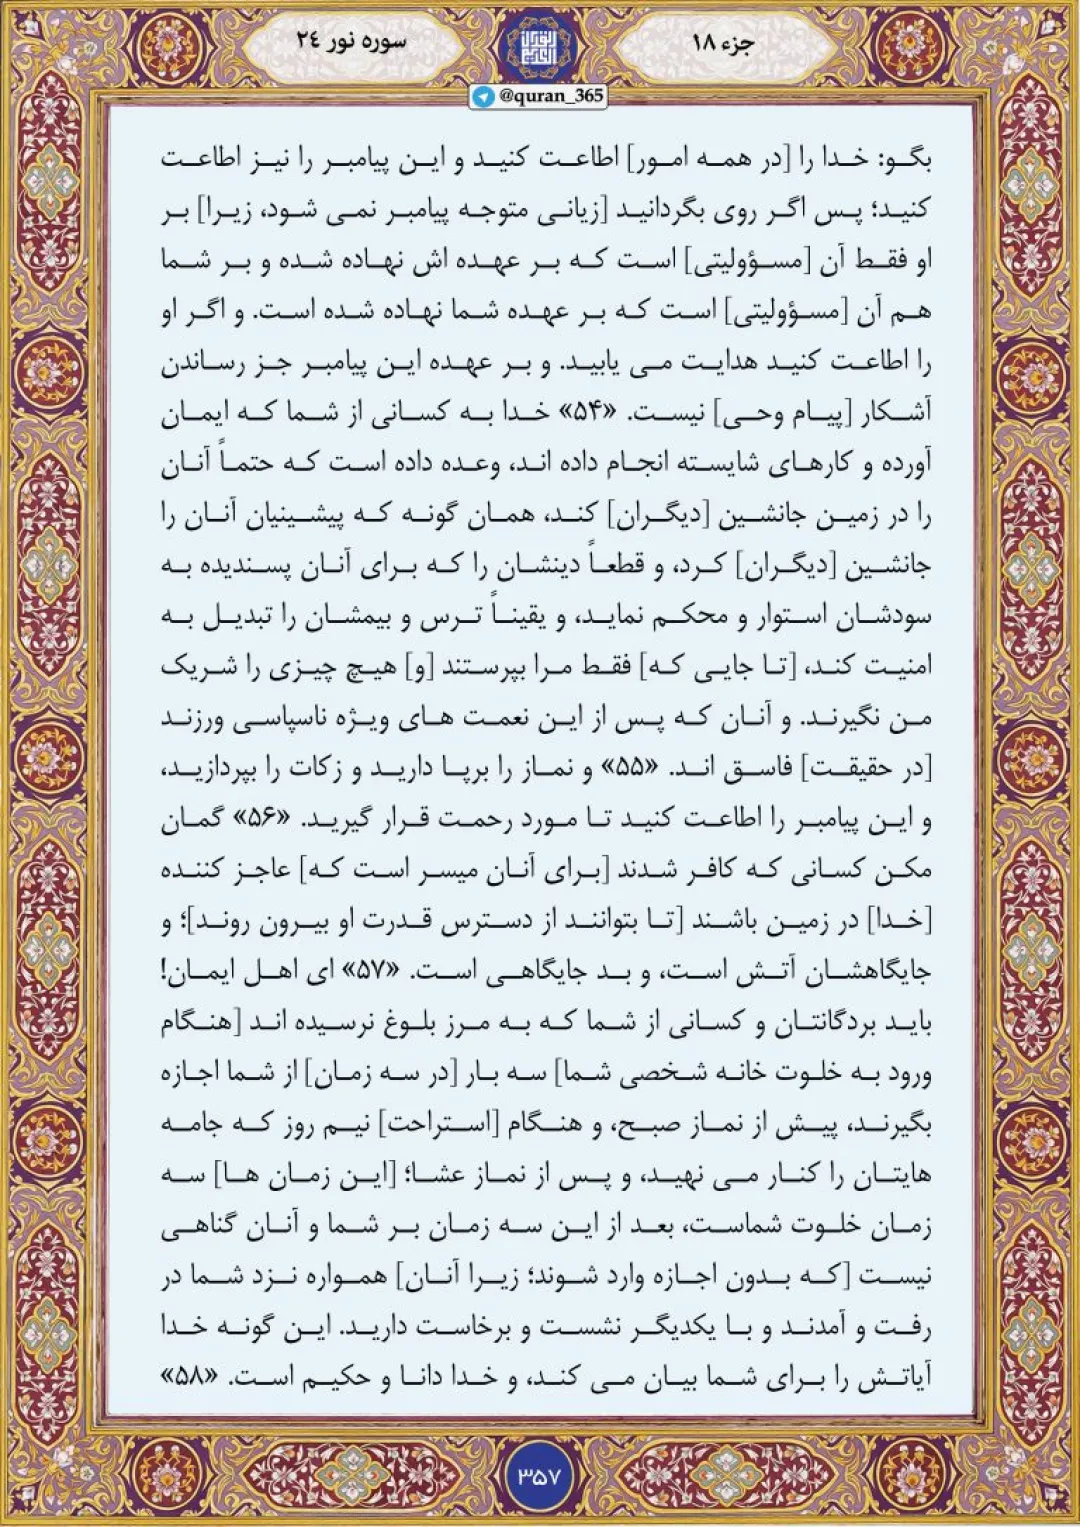 جزء ۱۸
سوره نور ۲۴
@quran_365
بگو: خدا را [در همه امور] اطاعت کنید و این پیامبر را نیز اطاعت
کنید؛ پس اگر روی بگردانید [زیانی متوجه پیامبر نمی شود، زیرا] بر
او فقط آن [مسؤولیتی] است که بر عهده اش نهاده شده و بر شما
هم آن [مسؤولیتی] است که بر عهده شما نهاده شده است. و اگر او
را اطاعت کنید هدایت می یابید. و بر عهده این پیامبر جز رساندن
آشکار [پیام وحی] نیست. «۵۴» خدا به کسانی از شما که ایمان
آورده و کارهای شایسته انجام داده اند، وعده داده است که حتماً آنان
را در زمین جانشین [دیگران] کند، همان گونه که پیشینیان آنان را
جانشین [دیگران] کرد، و قطعاً دینشان را که برای آنان پسندیده به
سودشان استوار و محکم نماید، و یقیناً ترس و بیمشان را تبدیل به
امنیت کند، [تا جایی که] فقط مرا بپرستند [و] هیچ چیزی را شریک
من نگیرند. و آنان که پس از این نعمت های ویژه ناسپاسی ورزند
[در حقیقت] فاسق اند. «۵۵» و نماز را برپا دارید و زکات را بپردازید،
و این پیامبر را اطاعت کنید تا مورد رحمت قرار گیرید. «۵۶» گمان
مکن کسانی که کافر شدند [برای آنان میسر است که] عاجز کننده
[خدا] در زمین باشند [تا بتوانند از دسترس قدرت او بیرون روند]؛ و
جایگاهشان آتش است، و بد جایگاهی است. «۵۷» ای اهل ایمان!
باید بردگانتان و کسانی از شما که به مرز بلوغ نرسیده اند [هنگام
ورود به خلوت خانه شخصی شما] سه بار [در سه زمان] از شما اجازه
بگیرند، پیش از نماز صبح، و هنگام [استراحت] نیم روز که جامه
هایتان را کنار می نهید، و پس از نماز عشا؛ [این زمان ها] سه
زمان خلوت شماست، بعد از این سه زمان بر شما و آنان گناهی
نیست [که بدون اجازه وارد شوند؛ زیرا آنان] همواره نزد شما در
رفت و آمدند و با یکدیگر نشست و برخاست دارید. این گونه خدا
آیاتش را برای شما بیان می کند، و خدا دانا و حکیم است. «۵۸»
۳۵۷